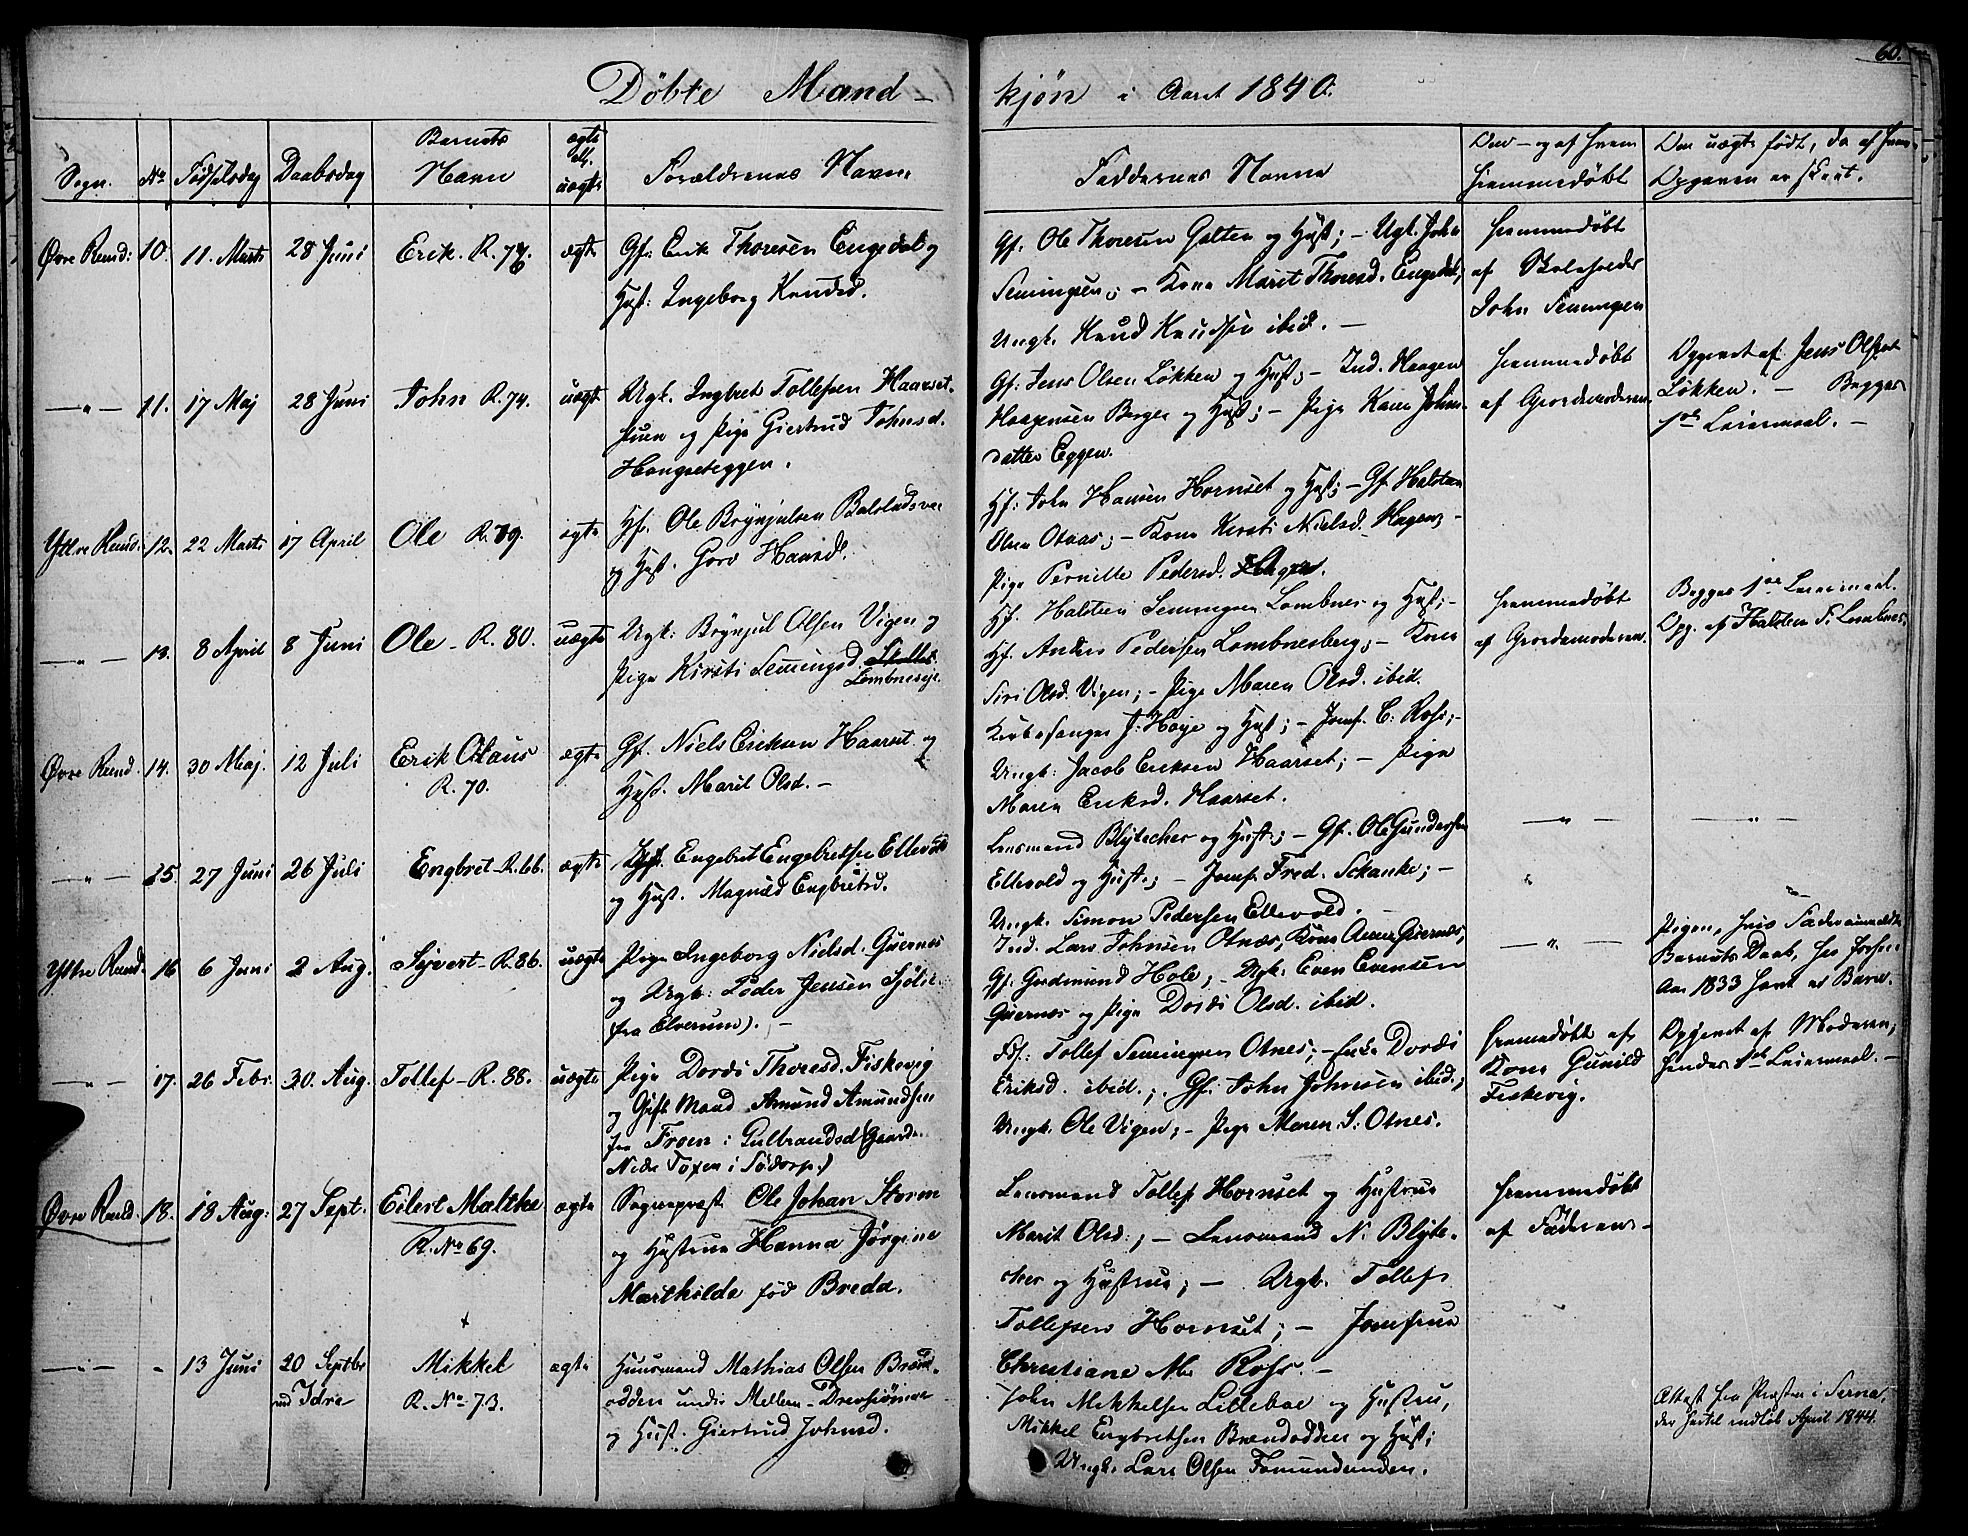 60.
Døbte Mand-
kjøn i Aaret 1840.
Sogn. No Fødselsdag Daabsdag Barnets Navn ægte ell. uægte Forældrenes Navne
Faddernes Navne
Om - og af hvem hiemmedøbt
Om uægte født, da af hvem Opgaven er skeet.
Øvre Rend: 10. 11. Marts 28 Juni Erik. R. 76. ægte
Gf: Erik Thoresen Engedal og
Hust: Ingeborg Knudsd.
Gf. Ole Thoresen Galten og Hust; - Ugk. John
Semingsen; - Kone Marit Thoresd. Engedal;
Ungk. Knud Knudsen ibid. -
hiemmedøbt
af Skoleholder
John Semingsen
- " - 11. 17 Maj 28 Juni John R. 74. uægte
Ugk. Ingbret Tollefsen Haarset-
og Pige Giertrud Johnsd.
Haugseteggen.
Gf: Jens Olsen Løkken og Hust; - Ind. Haagen
Haagensen Berger og Hust; - Pige Kari Johns-
datter Eggen.
hiemmedøbt
af Gjordemoderen
Opgivet af Jens Olsen
Løkken. - Begges
1ste Leiermaal. -
Yttre Rend. 12. 22 Marts 17 April Ole R. 79. ægte
Hf. Ole Brynjulsen Balstad
og Hust. Goro Hansd.
Hf: John Hansen Hornset og Hust; - Gf. Halsten
Olsen Otnas; - Kone Kirsti Nielsd. Hagen; -
Pige Pernille Pedersd. Hagen.
- " - 13. 8 April 8 Juni Ole - R. 80. uægte
Ugk: Brynjul Olsen Vigen og
Pige Kirsti Semingsd.
Lombneseje.
Hf. Halsten Semingsen Lombnes og Hust; -
Hf. Anders Pedersen Lombnesberg; - Kone
Siri Olsd. Vigen; - Pige Maren Olsd. ibid.
hiemmedøbt
af Gjordemoderen.
Begges 1ste Leiermaal.
Opg. af Halsten S. Lombnes.
Øvre Rend. 14. 30 Maj. 12 Juli Erik Olaus
R. 70. ægte
Gf. Niels Eriksen Haarset og
Hust. Marit Olsd. -
Kirkesanger J. Høye og Hust; - Jomf. C. Ross; -
Ungk: Jacob Eriksen Haarset; - Pige
Maren Eriksd. Haarset.
- " -
- " -
- " - 15. 27 Juni 26 Juli Engbret - R. 66. ægte
Engebret Engebretsen Ellevold
og Hust. Magnild Engbretsd.
Lensmand Blytecher og Hust; - Gf. Ole Gundersen
Ellevold og Hust; - Jomf. Fred. Schanke; -
Ungk. Simon Pedersen Ellevold.
Yttre Rend. 16 6 Juni 2 Aug. Syvert - R. 86. uægte
Pige Ingeborg Nielsd. Quernes
og Ungk: Peder Jensen Sjølie
(fra Elverum). -
Ind. Lars Johnsen Otnæs, Kone Anne Quernes,
Gf. Gudmund Hole; - Ugk. Even Evensen
Quernes og Pige Dordi Olsd. ibid.
- " -
Pigen, hvis Fader anmeldte
Barnets Daab, har forhen
Aar 1833 havt et Barn.
- " - 17. 26 Febr. 30. Aug. Tollef - R. 88. uægte
Pige Dordi Thoresd. Fiskevig
og Gift Mand Amund Amundsen
fra Froen i Gulbrandsd. (Gaarden
Nedre Toxen i Sødorp.)
Fdf: Tollef Semingsen Otnes; - Enke Dordi
Eriksd. ibid.; Gf. John Johnsen ibid.;
Ungk. Ole Vigen; - Pige Maren S. Otnes.
hiemmedøbt af
Kone Gunild
Fiskevig.
Opgivet af Moderen,
hendes 1ste Leiermaal. -
Øvre Rend. 18. 18 Aug: 27 Sept. Eilert Maltke
R. No 69. ægte
Sognepræst Ole Johan Storm
og Hustrue Hanna Jørgine
Marthilde fød Breda.
Lensmand Tollef Hornset og Hustrue
Marit Olsd:; - Lensmand N. Blyte-
cher og Hustrue; - Ugk. Tollef
Tollefsen Hornset; - Jomfrue
Christiane M. Ross. -
hiemmedøbt
af Faderen -
- " - - 13 Juni 20 Septbr
ved Idre
Mikkel
R. No 73. ægte
Huusmand Mathias Olsen Brænd-
odden under Mellem-Drevsiømoe
og Hust. Giertrud Johnsd.
John Mikkelsen Lilleboe og Hustru,
Mikkel Engbretsen Brændodden og Hust;
Ungk. Lars Olsen Fæmundenden.
Attest fra Præsten i Serna,
der hertil indløb April 1844.